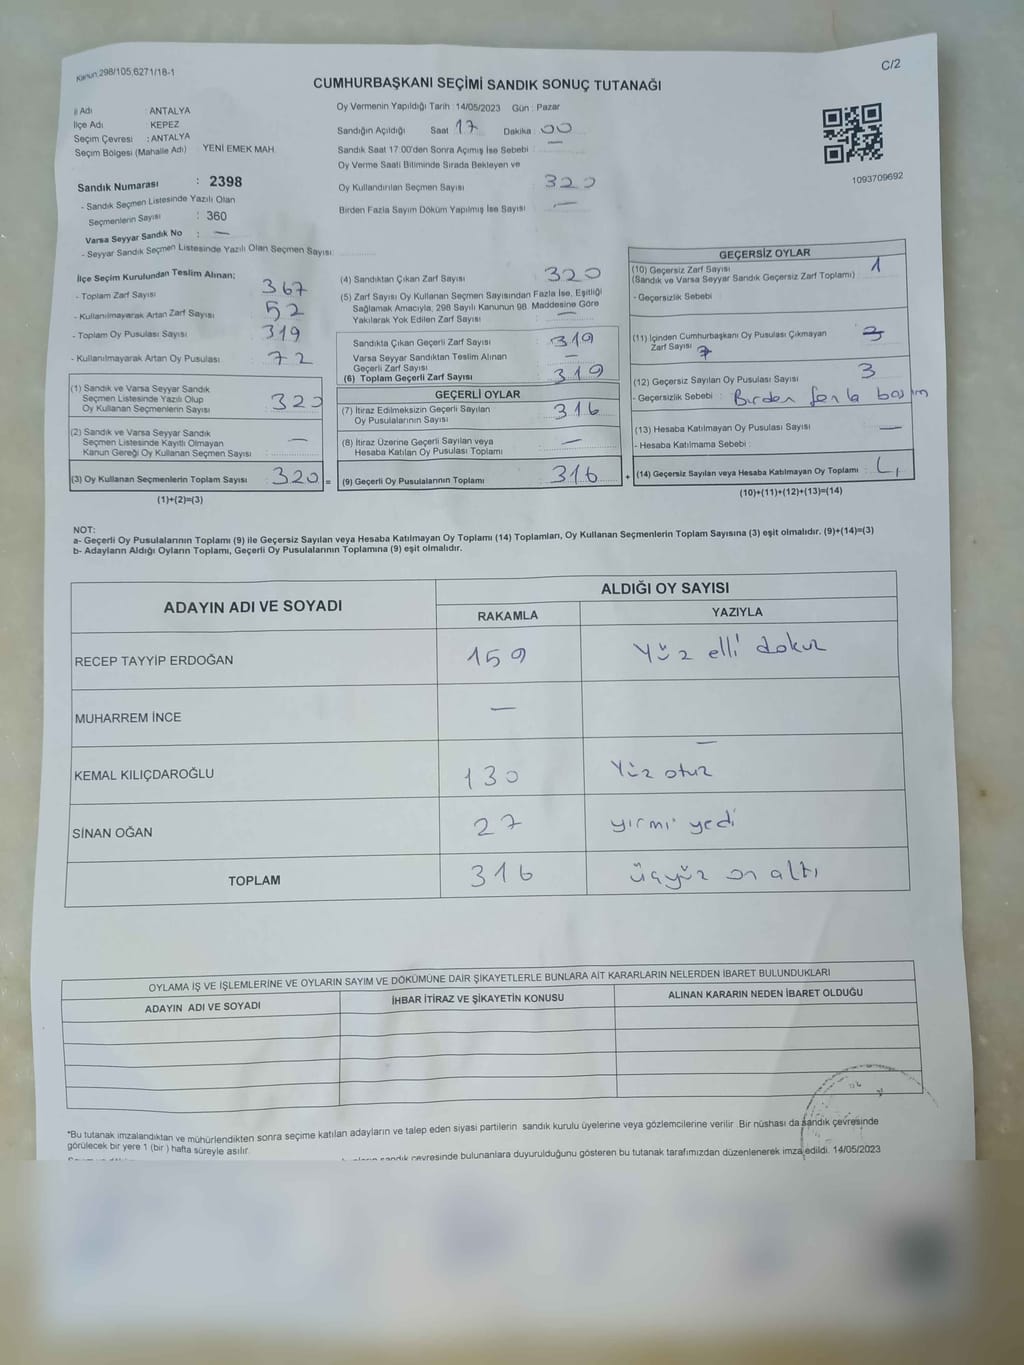 Kanun:298/105,6271/18-1
C/2
CUMHURBAŞKANI SEÇİMİ SANDIK SONUÇ TUTANAĞI
İl Adı : ANTALYA
İlçe Adı KEPEZ
Seçim Çevresi : ANTALYA
Seçim Bölgesi (Mahalle Adı) YENİ EMEK MAH.
Sandık Numarası : 2398
- Sandık Seçmen Listesinde Yazılı Olan
Seçmenlerin Sayısı : 360
Varsa Seyyar Sandık No : —
- Seyyar Sandık Seçmen Listesinde Yazılı Olan Seçmen Sayısı:
Oy Vermenin Yapıldığı Tarih : 14/05/2023 Gün : Pazar
Sandığın Açıldığı Saat 17 Dakika : 00
Sandık Saat 17:00'den Sonra Açılmış İse Sebebi : —
Oy Verme Saati Bitiminde Sırada Bekleyen ve
Oy Kullandırılan Seçmen Sayısı 320
Birden Fazla Sayım Döküm Yapılmış İse Sayısı : —
1093709692
İlçe Seçim Kurulundan Teslim Alınan;
- Toplam Zarf Sayısı 367
- Kullanılmayarak Artan Zarf Sayısı : 52
- Toplam Oy Pusulası Sayısı : 319
- Kullanılmayarak Artan Oy Pusulası : 72
(1) Sandık ve Varsa Seyyar Sandık
Seçmen Listesinde Yazılı Olup
Oy Kullanan Seçmenlerin Sayısı : 320
(2) Sandık ve Varsa Seyyar Sandık
Seçmen Listesinde Kayıtlı Olmayan
Kanun Gereği Oy Kullanan Seçmen Sayısı : —
(3) Oy Kullanan Seçmenlerin Toplam Sayısı : 320 =
(1)+(2)=(3)
(4) Sandıktan Çıkan Zarf Sayısı : 320
(5) Zarf Sayısı Oy Kullanan Seçmen Sayısından Fazla İse, Eşitliği
Sağlamak Amacıyla, 298 Sayılı Kanunun 98. Maddesine Göre
Yakılarak Yok Edilen Zarf Sayısı : —
Sandıkta Çıkan Geçerli Zarf Sayısı : 319
Varsa Seyyar Sandıktan Teslim Alınan
Geçerli Zarf Sayısı : —
(6) Toplam Geçerli Zarf Sayısı : 319
GEÇERLİ OYLAR
(7) İtiraz Edilmeksizin Geçerli Sayılan
Oy Pusulasının Sayısı : 316
(8) İtiraz Üzerine Geçerli Sayılan veya
Hesaba Katılan Oy Pusulası Toplamı : —
(9) Geçerli Oy Pusulalarının Toplamı : 316 +
GEÇERSİZ OYLAR
(10) Geçersiz Zarf Sayısı
(Sandık ve Varsa Seyyar Sandık Geçersiz Zarf Toplamı) : 1
- Geçersizlik Sebebi :
(11) İçinden Cumhurbaşkanı Oy Pusulası Çıkmayan
Zarf Sayısı
(12) Geçersiz Sayılan Oy Pusulası Sayısı : 3
- Geçersizlik Sebebi : Birden fazla basım
(13) Hesaba Katılmayan Oy Pusulası Sayısı : —
- Hesaba Katılmama Sebebi :
(14) Geçersiz Sayılan veya Hesaba Katılmayan Oy Toplamı : 4
(10)+(11)+(12)+(13)=(14)
NOT:
a- Geçerli Oy Pusulalarının Toplamı (9) ile Geçersiz Sayılan veya Hesaba Katılmayan Oy Toplamı (14) Toplamları, Oy Kullanan Seçmenlerin Toplam Sayısına (3) eşit olmalıdır. (9)+(14)=(3)
b- Adayların Aldığı Oyların Toplamı, Geçerli Oy Pusulalarının Toplamına (9) eşit olmalıdır.
ADAYIN ADI VE SOYADI
ALDIĞI OY SAYISI
RAKAMLA YAZIYLA
RECEP TAYYİP ERDOĞAN 159 Yüz elli dokuz
MUHARREM İNCE — —
KEMAL KILIÇDAROĞLU 130 Yüz otuz
SİNAN OĞAN 27 yirmi yedi
TOPLAM 316 üçyüz on altı
OYLAMA İŞ VE İŞLEMLERİNE VE OYLARIN SAYIM VE DÖKÜMÜNE DAİR ŞİKAYETLERLE BUNLARA AİT KARARLARIN NELERDEN İBARET BULUNDUKLARI
ADAYIN ADI VE SOYADI İHBAR İTİRAZ VE ŞİKAYETİN KONUSU ALINAN KARARIN NEDEN İBARET OLDUĞU
*Bu tutanak imzalandıktan ve mühürlendikten sonra seçime katılan adayların ve talep eden siyasi partilerin sandık kurulu üyelerine veya gözlemcilerine verilir. Bir nüshası da sandık çevresinde
görülecek bir yere 1 (bir) hafta süreyle asılır.
sandık çevresinde bulunanlara duyurulduğunu gösteren bu tutanak tarafımızdan düzenlenerek imza edildi. 14/05/2023